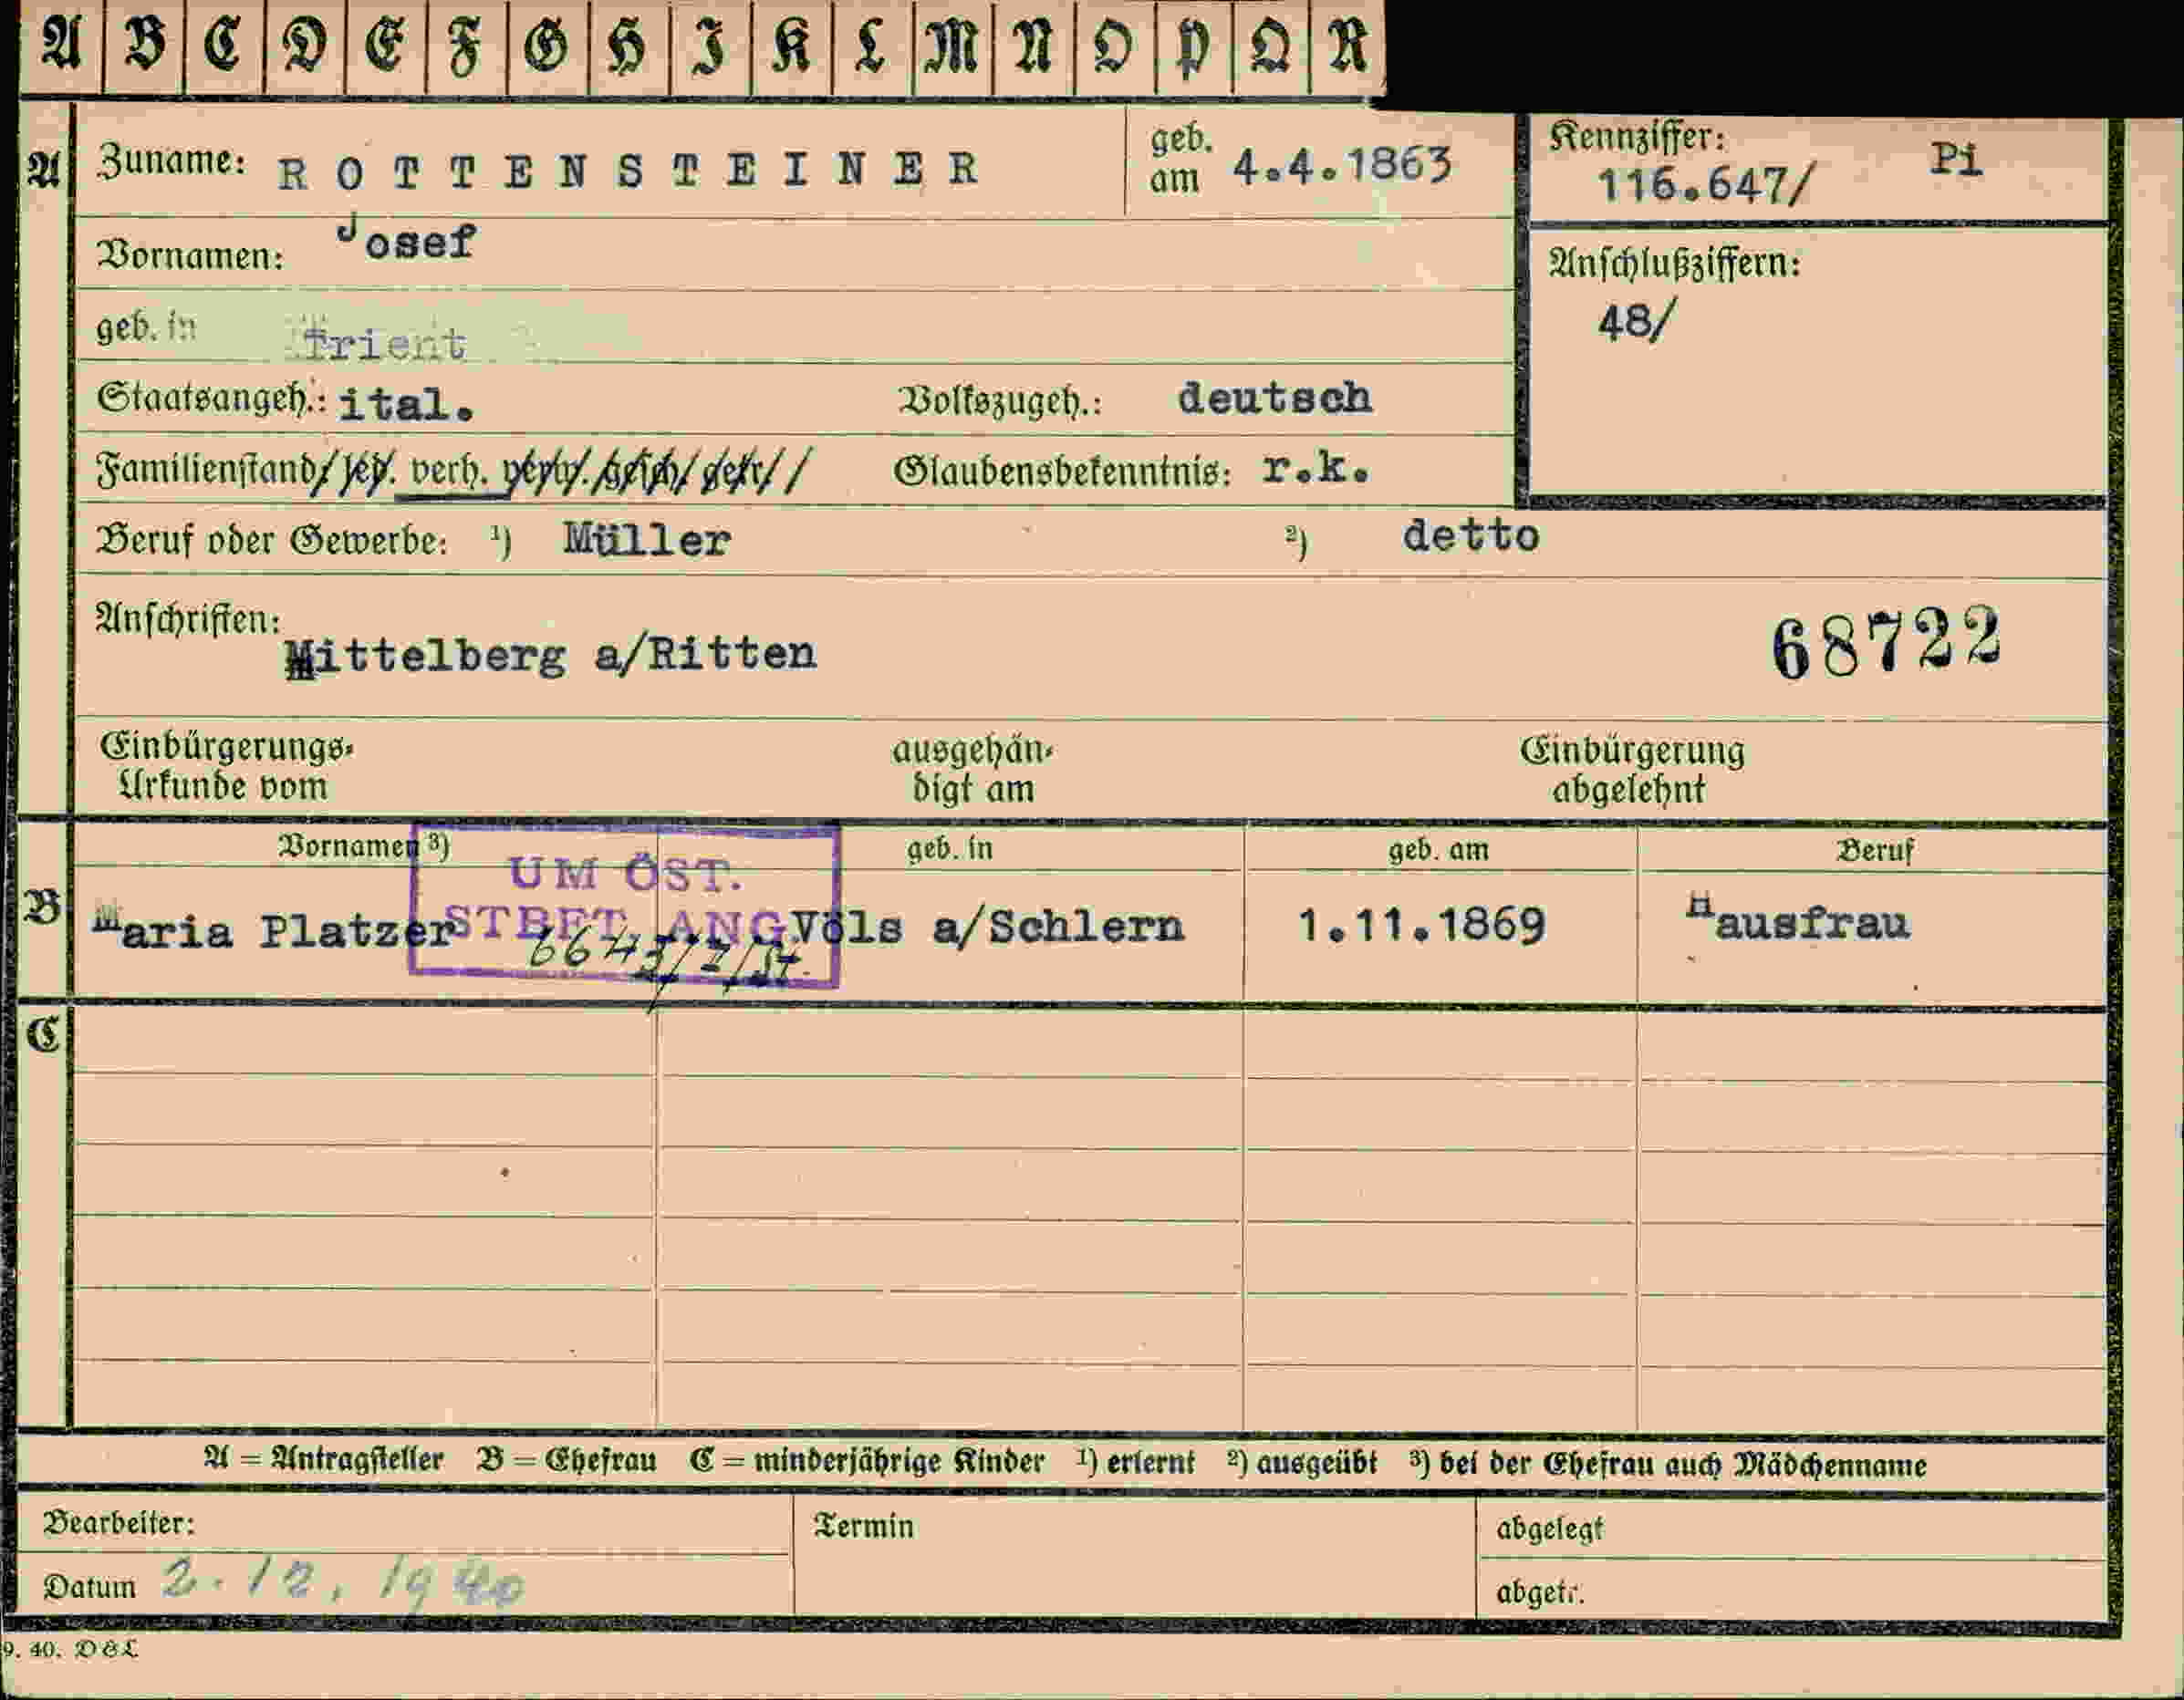 A B C D E F G H I K L M N O P Q R
A Zuname: ROTTENSTEINER geb. am 4.4.1863 Kennziffer: 116.647/ Pi
Vornamen: Josef
Anschlußziffern:
48/
geb. in Trient
Staatsangeh.: ital. Volkszugeh.: deutsch
Familienstand led. verh. verw. gesch. getr. Glaubensbekenntnis: r.k.
Beruf oder Gewerbe: ¹) Müller ²) detto
Anschriften:
Mittelberg a/Ritten 68722
Einbürgerungs-
Urkunde vom
ausgehän-
digt am
Einbürgerung
abgelehnt
Vornamen ³) geb. in geb. am Beruf
UM ÖST.
STBFT. ANG.
B Maria Platzer Völs a/Schlern 1.11.1869 Hausfrau
C
A = Antragsteller B = Ehefrau C = minderjährige Kinder ¹) erlernt ²) ausgeübt ³) bei der Ehefrau auch Mädchenname
Bearbeiter: Termin abgelegt
Datum 2.12.1940 abgetr.
9. 40.